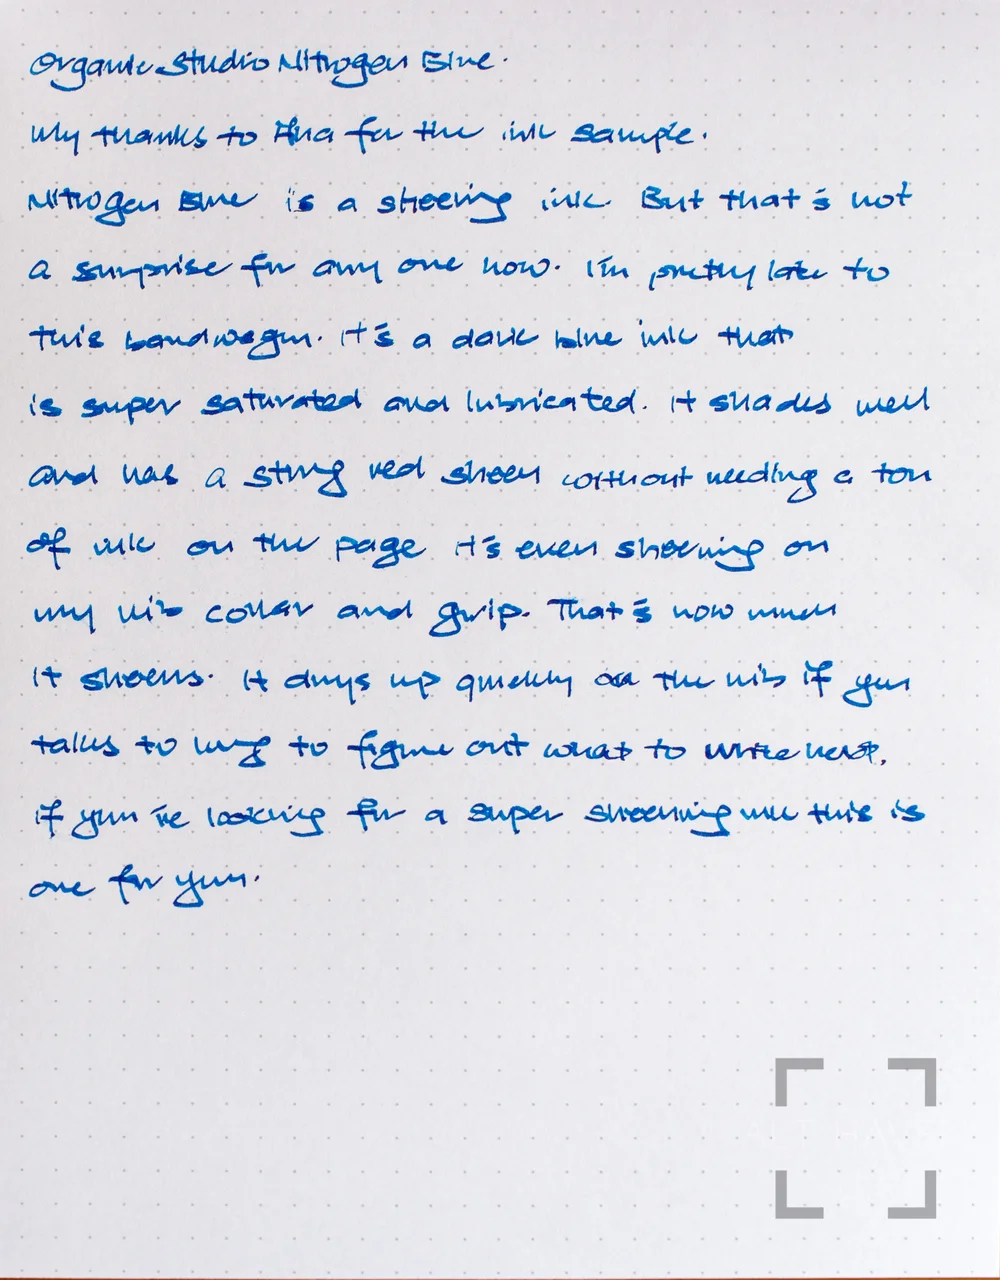 Organic Studio Nitrogen Blue.
My thanks to Ana for the ink sample.
Nitrogen Blue is a sheening ink. But that's not
a surprise for any one now. I'm pretty late to
this bandwagon. It's a dark blue ink that
is super saturated and lubricated. It shades well
and has a strong red sheen without needing a ton
of ink on the page. It's even sheening on
my nib collar and grip. That's how much
it sheens. It drys up quickly on the nib if you
takes to long to figure out what to write next.
If you're looking for a super sheening ink this is
one for you.